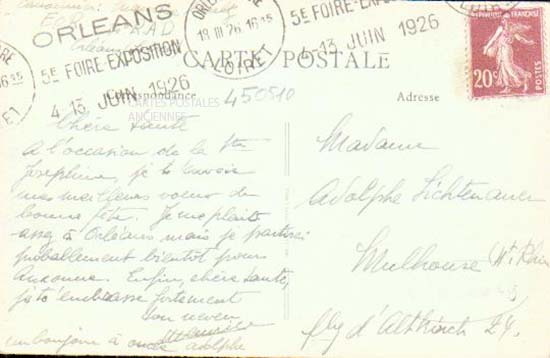 ORLEANS
5E FOIRE-EXPOSITION
4-13 JUIN 1926
19 III 26 16 45
LOIRET
5E FOIRE-EXPO
4-13 JUIN 1926
RÉPUBLIQUE FRANÇAISE
20c
CARTE POSTALE
Correspondance
Adresse
450510
CARTES POSTALES
ANCIENNES
Chère tante
A l'occasion de la Ste
Joséphine, je te envoie
mes meilleurs voeux de
bonne fête. Je me plais
assez à Orléans mais je partirai
probablement bientôt pour
Auxonne. Enfin, chère tante,
je t'embrasse fortement
ton neveu
un bonjour à oncle Adolphe
Madame
Adolphe Lichtenauer
Mulhouse (Ht Rhin
fbg d'Altkirch 24.